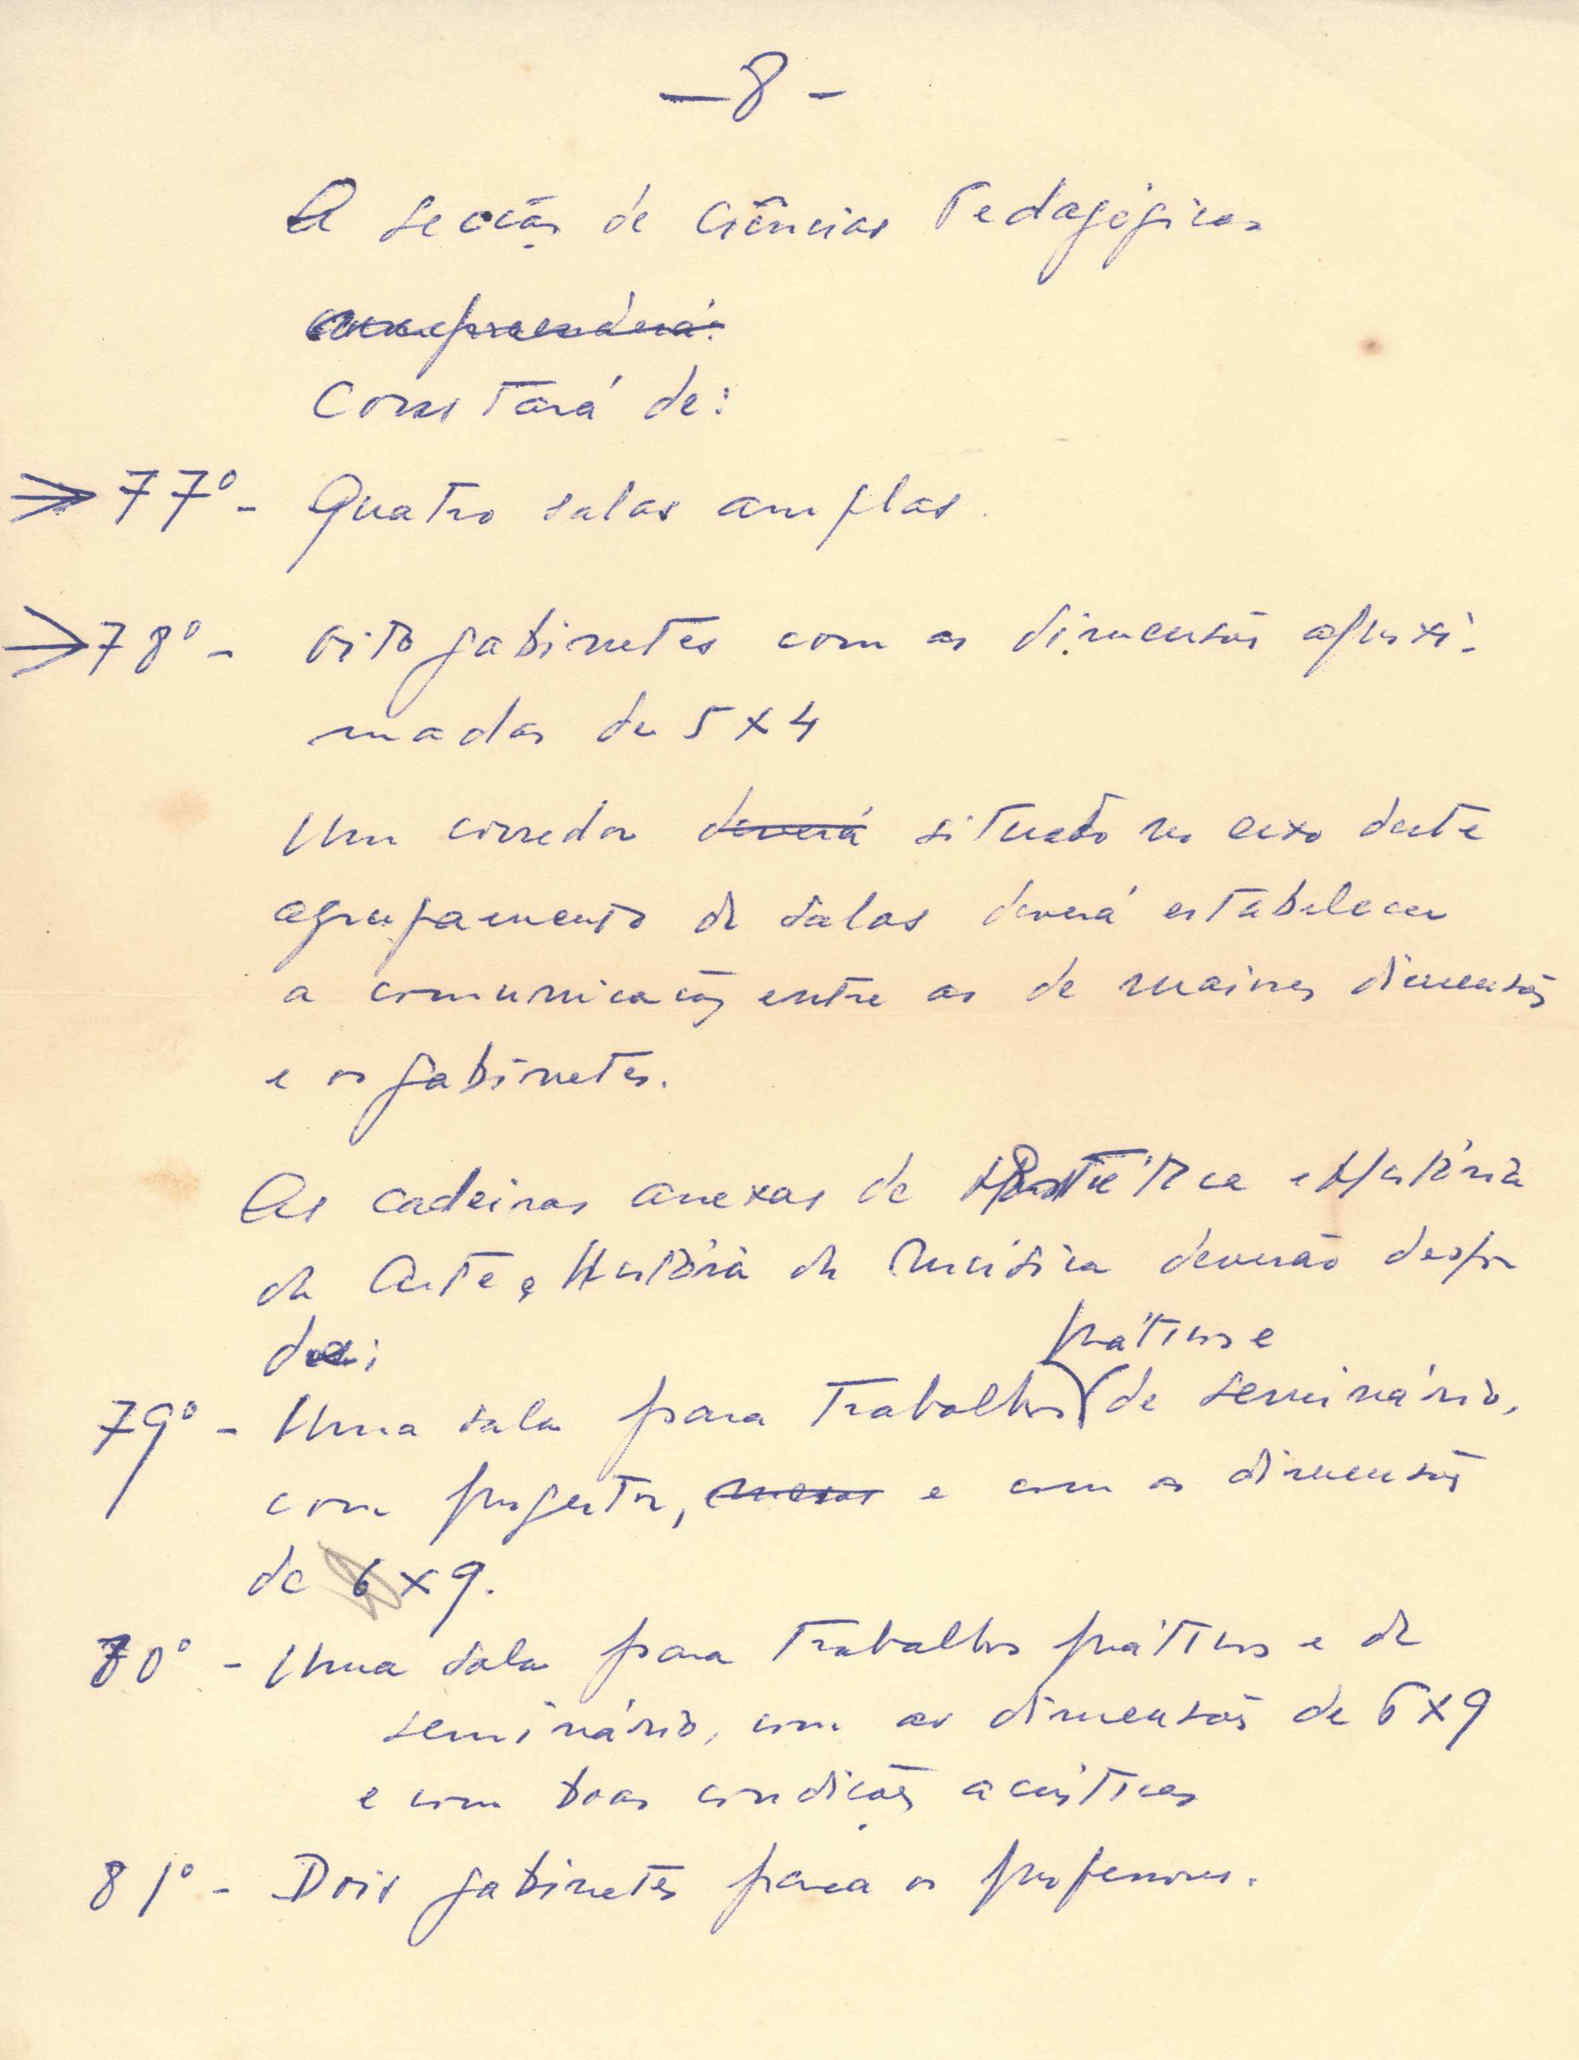 — 8 -
A secção de Ciências Pedagógicas
compreenderá:
Constará de:
77º - Quatro salas amplas.
78º - oito gabinetes com as dimensões aproxi-
madas de 5 x 4
Um corredor deverá situado no eixo deste
agrupamento de salas deverá estabelecer
a comunicação entre as de maiores dimensões
e os gabinetes.
As cadeiras anexas de Estética e História
da Arte e História da Música deverão dispor
de:
práticos e
79º - Uma sala para trabalhos de seminário,
com projector, mesas e com as dimensões
de 6 x 9.
80º - Uma sala para trabalhos práticos e de
seminário, com as dimensões de 6 x 9
e com boas condições acústicas
81º - Dois gabinetes para os professores.